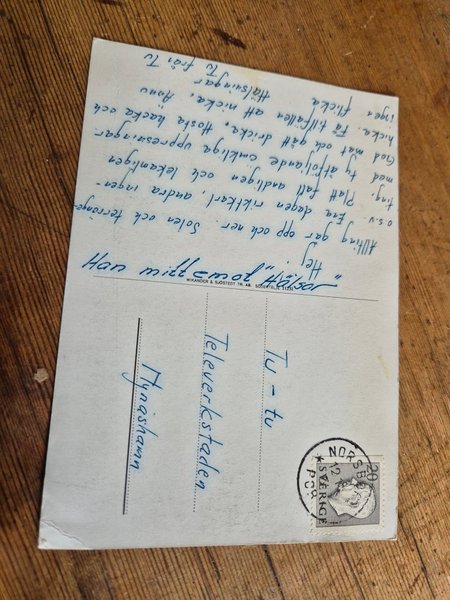 Hej.
Allting går opp och ner Solen och terränge
o.s.v Ena dagen riktkarl, andra ingen-
ting. Platt fall andligen och lekamligen
med ty åtföljande ömkliga uppresningar
God mat och gått dricka. Hosta hacka och
hicka. Få tillfällen att nicka. Ännu
ingen flicka
Hälsningar
Tu från Tu
Han mitt emot
WIKANDER & SJÖSTEDT TR. AB. SÖDERTÄLJE
Tu - tu
Televerkstaden
Nynäshamn
20
SVERIGE
12